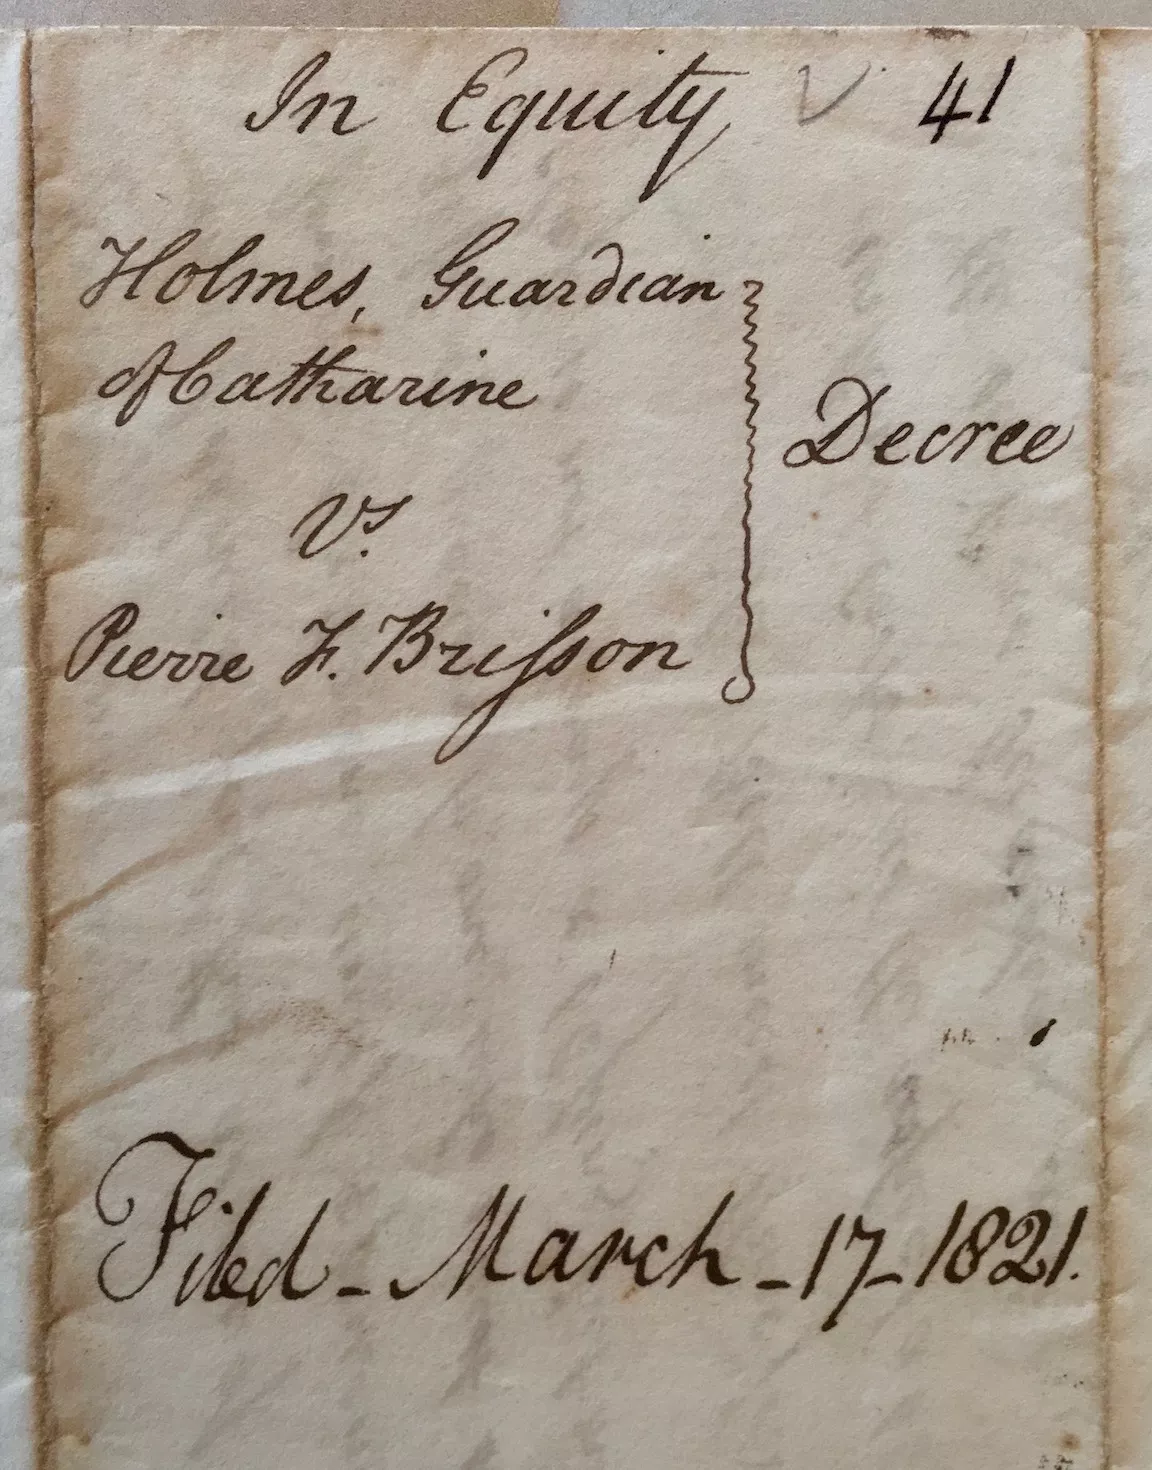 In Equity 41
Holmes, Guardian
of Catharine
Decree
Vs.
Pierre F. Briſson
Filed - March - 17 - 1821.